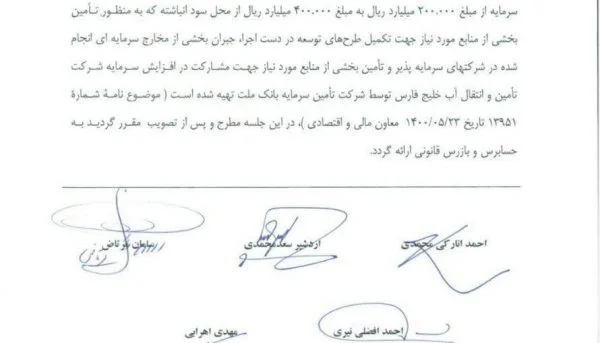 سرمایه از مبلغ ۲۰۰.۰۰۰ میلیارد ریال به مبلغ ۴۰۰.۰۰۰ میلیارد ریال از محل سود انباشته که به منظور تأمین
بخشی از منابع مورد نیاز جهت تکمیل طرح‌های توسعه در دست اجرا، جبران بخشی از مخارج سرمایه ای انجام
شده در شرکتهای سرمایه پذیر و تأمین بخشی از منابع مورد نیاز جهت مشارکت در افزایش سرمایه شرکت
تأمین و انتقال آب خلیج فارس توسط شرکت تأمین سرمایه بانک ملت تهیه شده است ( موضوع نامهٔ شمارهٔ
۱۳۹۵۱ تاریخ ۱۴۰۰/۰۵/۲۳ معاون مالی و اقتصادی )، در این جلسه مطرح و پس از تصویب مقرر گردید به
حسابرس و بازرس قانونی ارائه گردد.
احمد انارکی محمدی اردشیر سعدمحمدی سامان
احمد افضلی نیری مهدی اهرابی